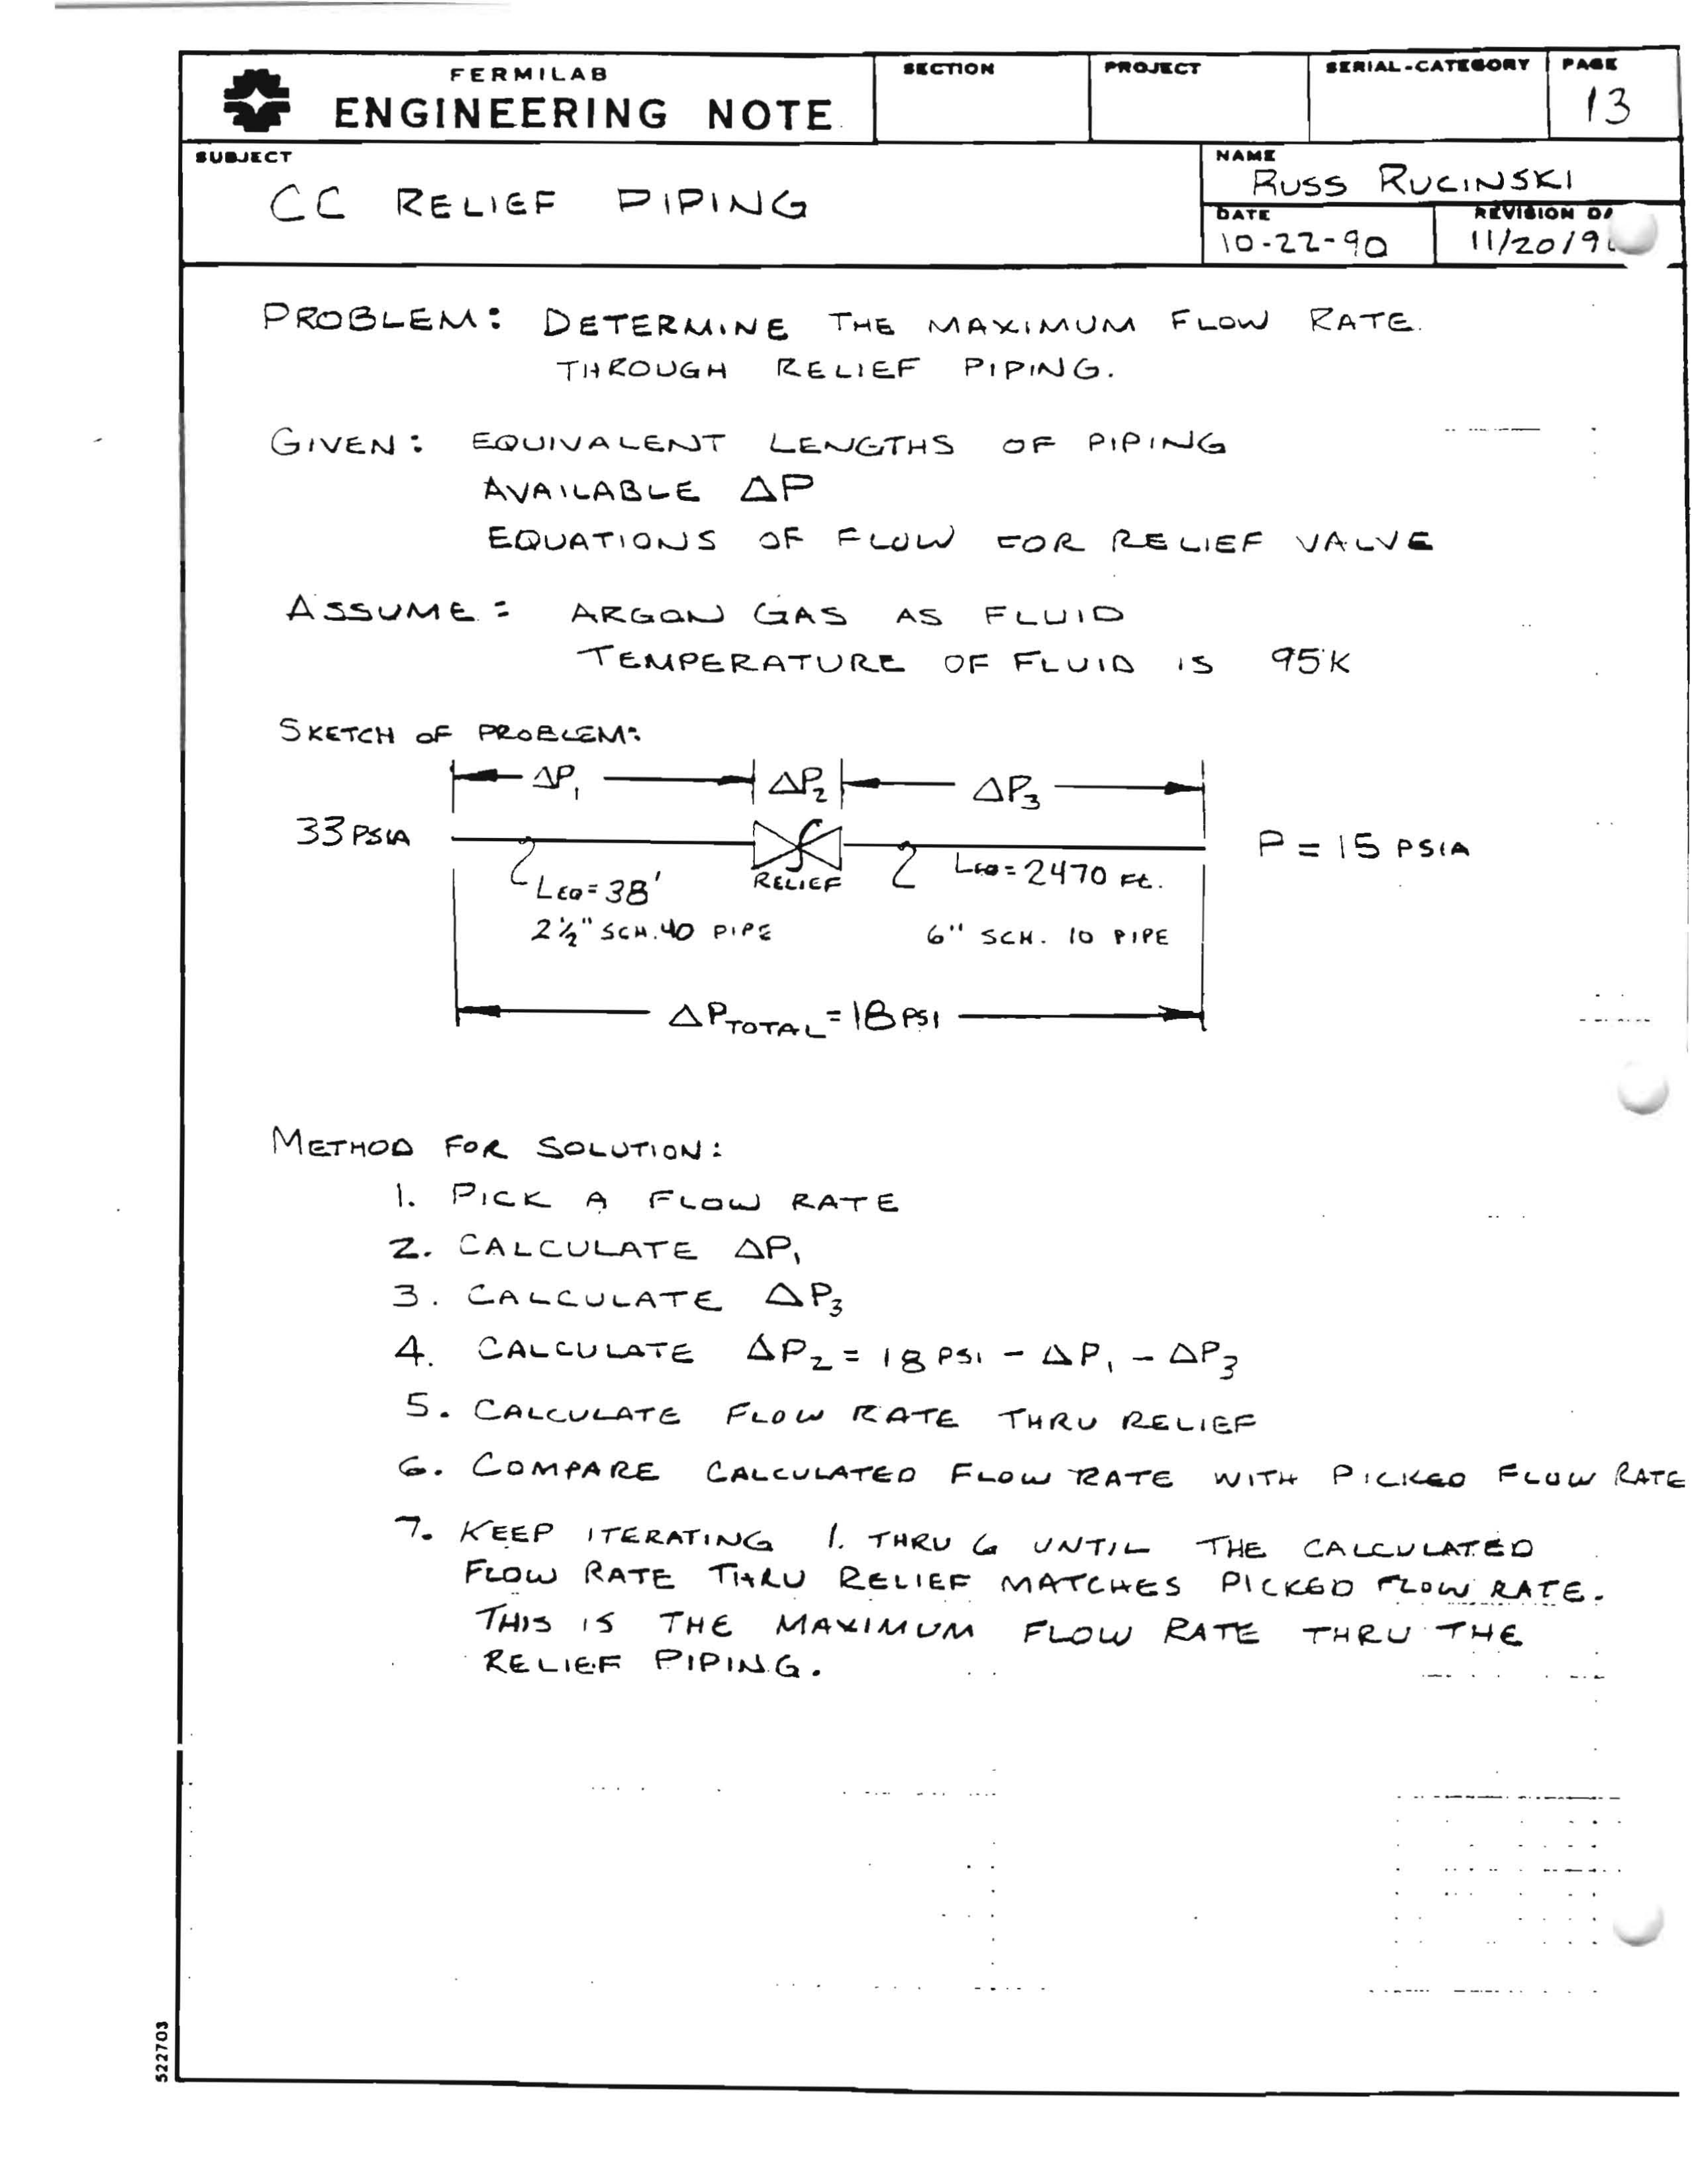 FERMILAB
ENGINEERING NOTE
SECTION
PROJECT
SERIAL-CATEGORY
PAGE
13
SUBJECT
CC RELIEF PIPING
NAME
RUSS RUCINSKI
DATE
10-22-90
REVISION
11/20/9
PROBLEM: DETERMINE THE MAXIMUM FLOW RATE
THROUGH RELIEF PIPING.
GIVEN: EQUIVALENT LENGTHS OF PIPING
AVAILABLE ΔP
EQUATIONS OF FLOW FOR RELIEF VALVE
ASSUME: ARGON GAS AS FLUID
TEMPERATURE OF FLUID IS 95K
SKETCH OF PROBLEM:
ΔP₁ ΔP₂ ΔP₃
33 PSIA
P = 15 PSIA
LEQ = 38'
2½" SCH. 40 PIPE
RELIEF
LEQ = 2470 Ft.
6" SCH. 10 PIPE
ΔPTOTAL = 18 PSI
METHOD FOR SOLUTION:
1. PICK A FLOW RATE
2. CALCULATE ΔP₁
3. CALCULATE ΔP₃
4. CALCULATE ΔP₂ = 18 PSI - ΔP₁ - ΔP₃
5. CALCULATE FLOW RATE THRU RELIEF
6. COMPARE CALCULATED FLOW RATE WITH PICKED FLOW RATE
7. KEEP ITERATING 1. THRU 6 UNTIL THE CALCULATED
FLOW RATE THRU RELIEF MATCHES PICKED FLOW RATE.
THIS IS THE MAXIMUM FLOW RATE THRU THE
RELIEF PIPING.
522703